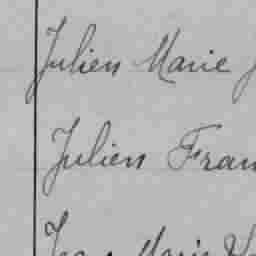 Julien Marie
Julien Fran
Marie